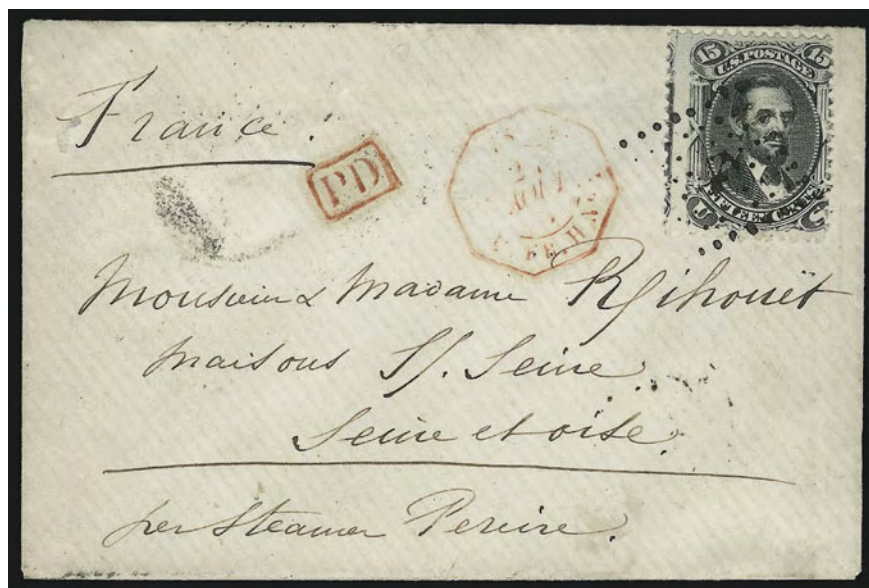 15 U.S. POSTAGE 15
FIFTEEN CENTS
U S
France.
PD
2
AOUT
Monsieur & Madame
Maisons S/. Seine
Seine et oise
per Steamer Pereire.